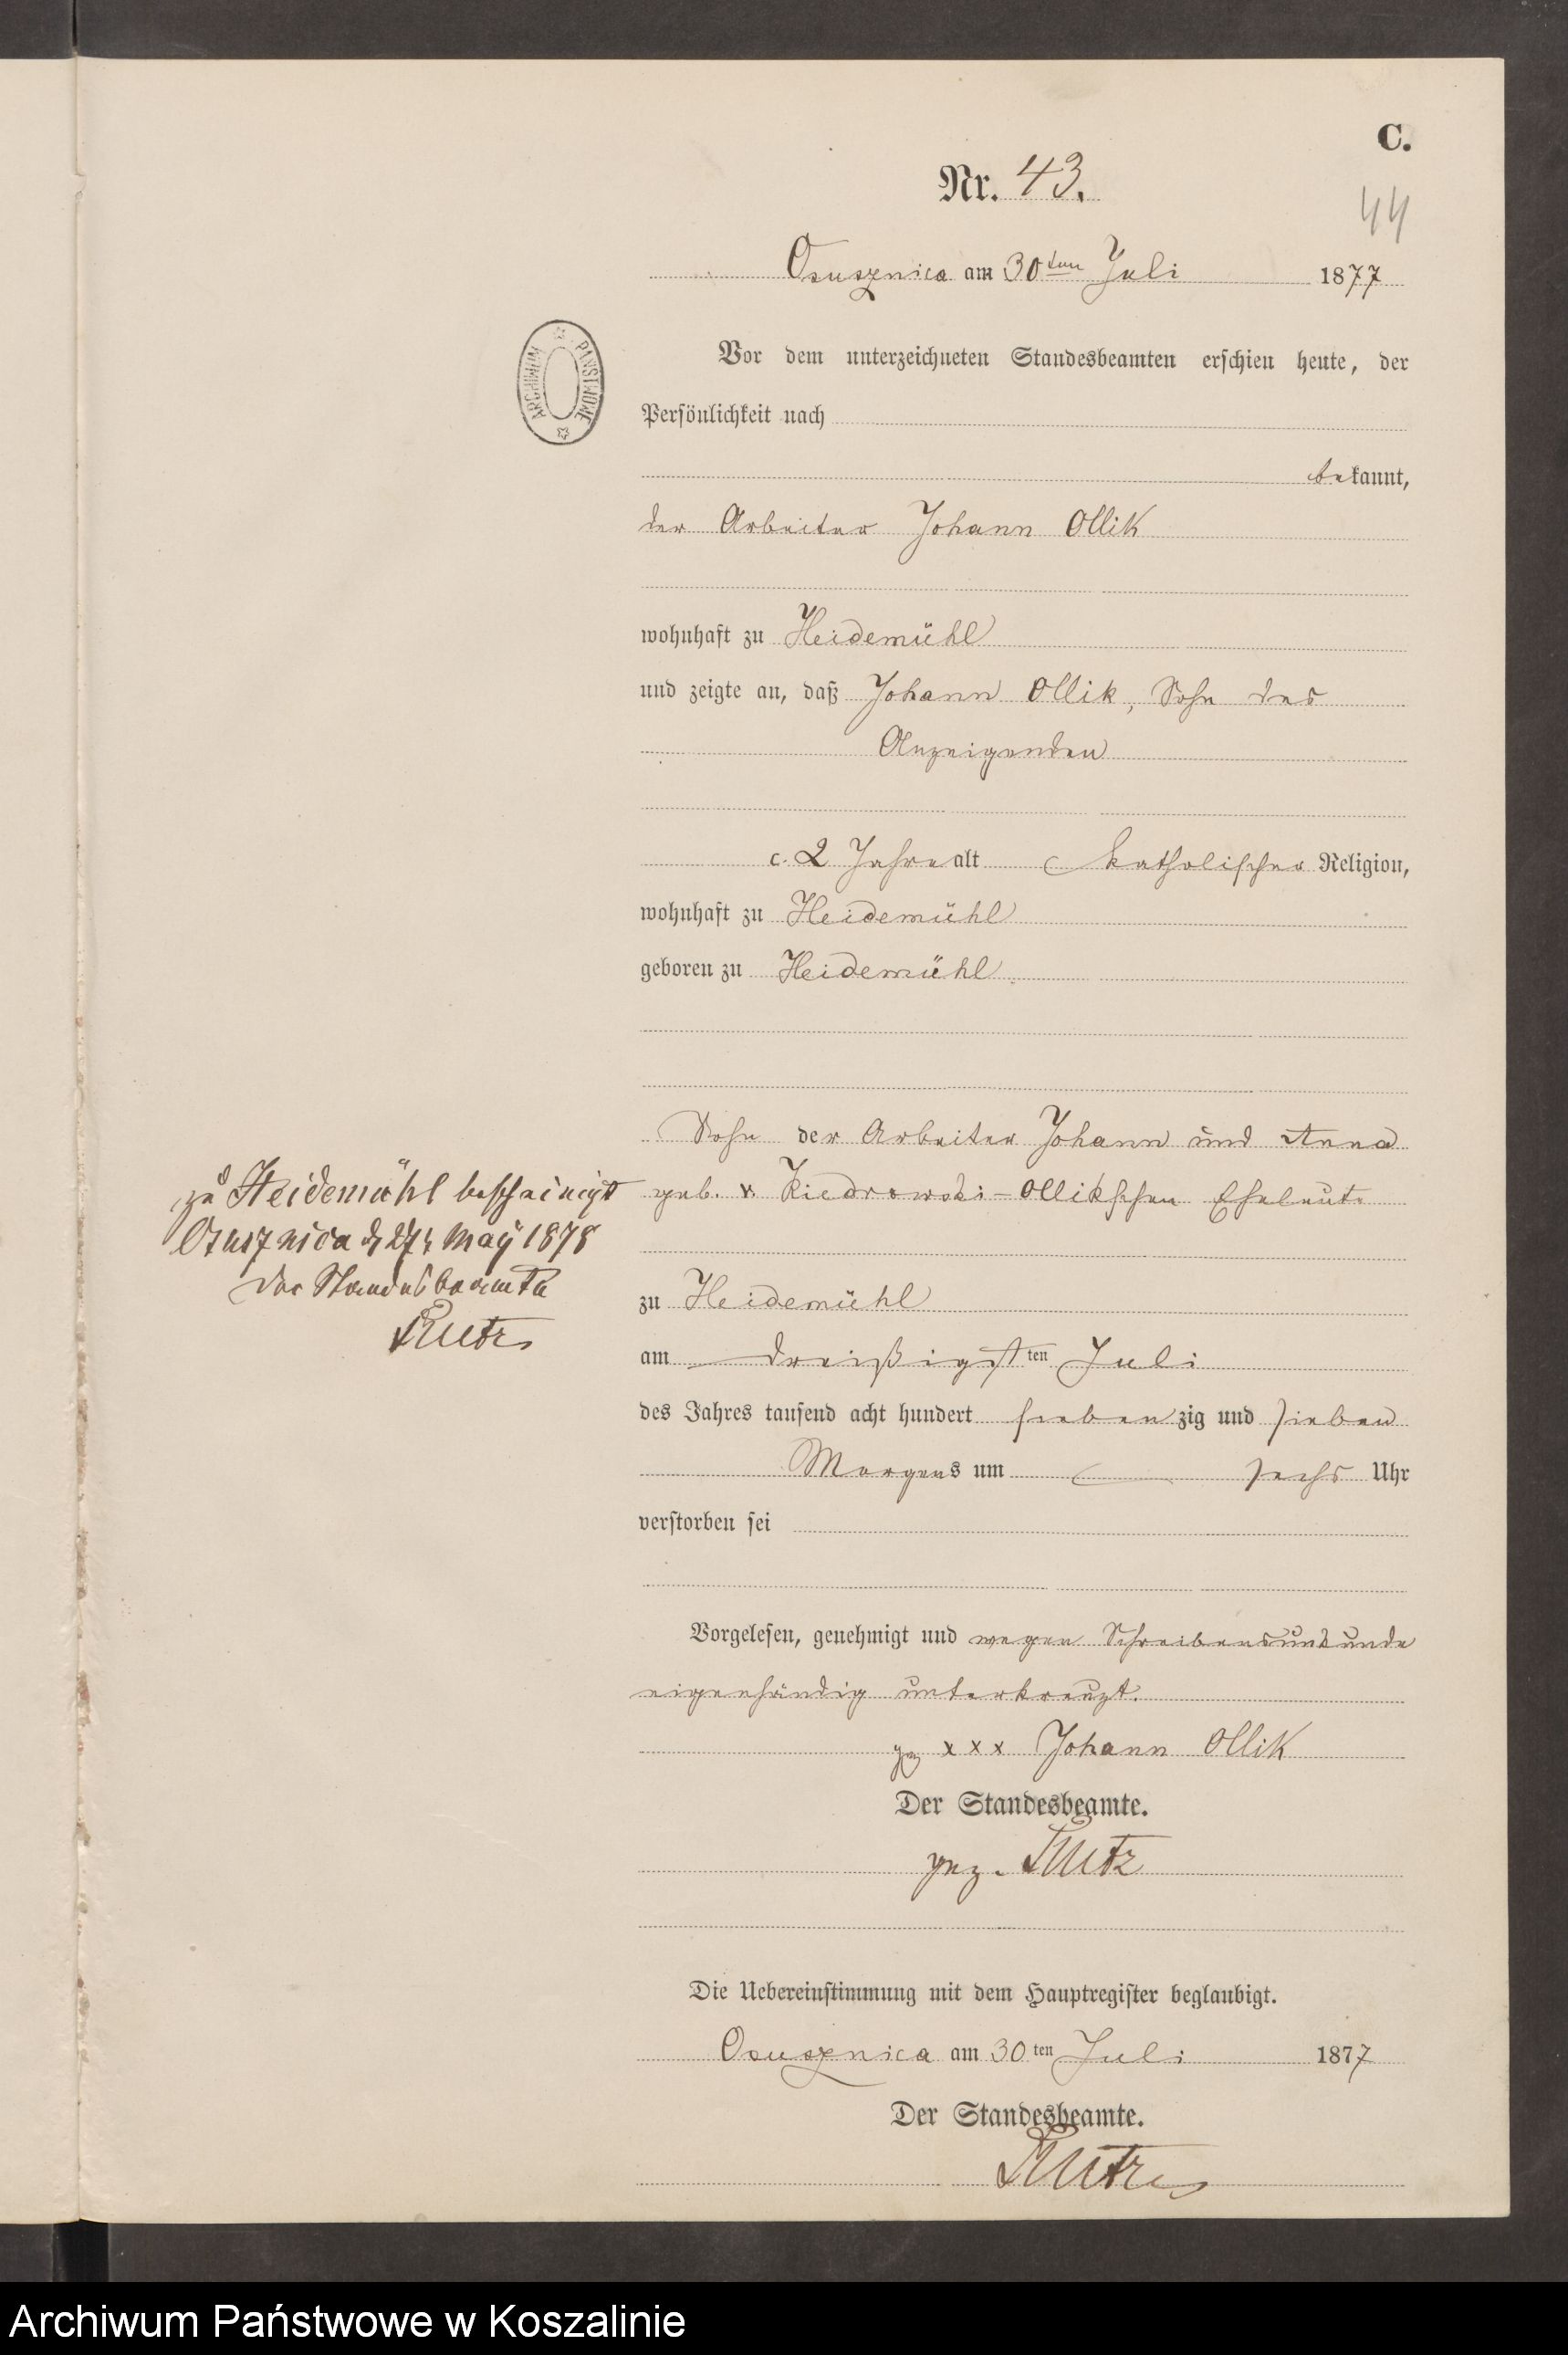 C.
Nr. 43.
44
Osusznica am 30ten Juli 1877
ARCHIWUM PAŃSTWOWE
Vor dem unterzeichneten Standesbeamten erschien heute, der
Persönlichkeit nach
bekannt,
der Arbeiter Johann Ollik
wohnhaft zu Heidemühl
und zeigte an, daß Johann Ollik, Sohn des
Anzeigenden
c. 2 Jahre alt katholischer Religion,
wohnhaft zu Heidemühl
geboren zu Heidemühl
Sohn der Arbeiter Johann und Anna
geb. v. Kiedrowski-Ollikschen Eheleute
zu Heidemühl bescheinigt
Osusznica d 27t May 1878
Der Standesbeamte
zu Heidemühl
am dreißigsten Juli
des Jahres tausend acht hundert siebenzig und sieben
Morgens um sechs Uhr
verstorben sei
Vorgelesen, genehmigt und wegen Schreibensunkunde
eigenhändig unterkreuzt.
gz xxx Johann Ollik
Der Standesbeamte.
gez.
Die Uebereinstimmung mit dem Hauptregister beglaubigt.
Osusznica am 30ten Juli 1877
Der Standesbeamte.
Archiwum Państwowe w Koszalinie